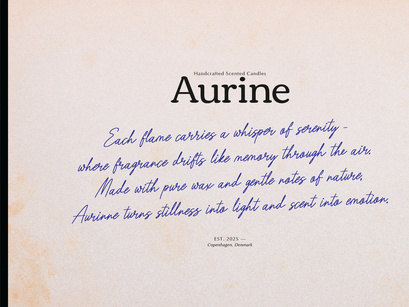 Handcrafted Scented Candles
Aurine
Each flame carries a whisper of serenity -
where fragrance drifts like memory through the air.
Made with pure wax and gentle notes of nature,
Aurinne turns stillness into light and scent into emotion.
EST. 2025 —
Copenhagen, Denmark